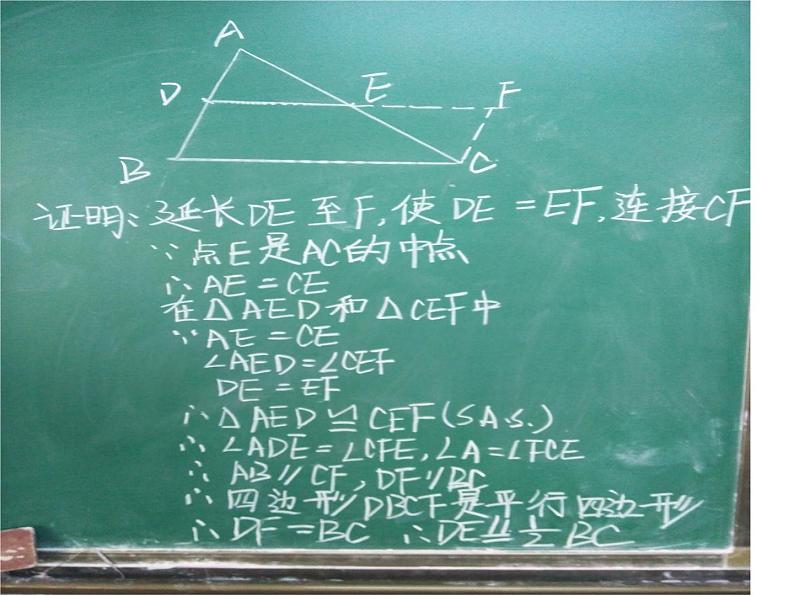 A
D
E
F
B
C
证明:延长DE至F,使DE=EF,连接CF
∵点E是AC的中点
∴AE=CE
在△AED和△CEF中
∵AE=CE
∠AED=∠CEF
DE=EF
∴△AED≌CEF(S.A.S.)
∴∠ADE=∠CFE,∠A=∠FCE
∴AB∥CF,DF∥BC
∴四边形DBCF是平行四边形
∴DF=BC ∴DE⫽½BC